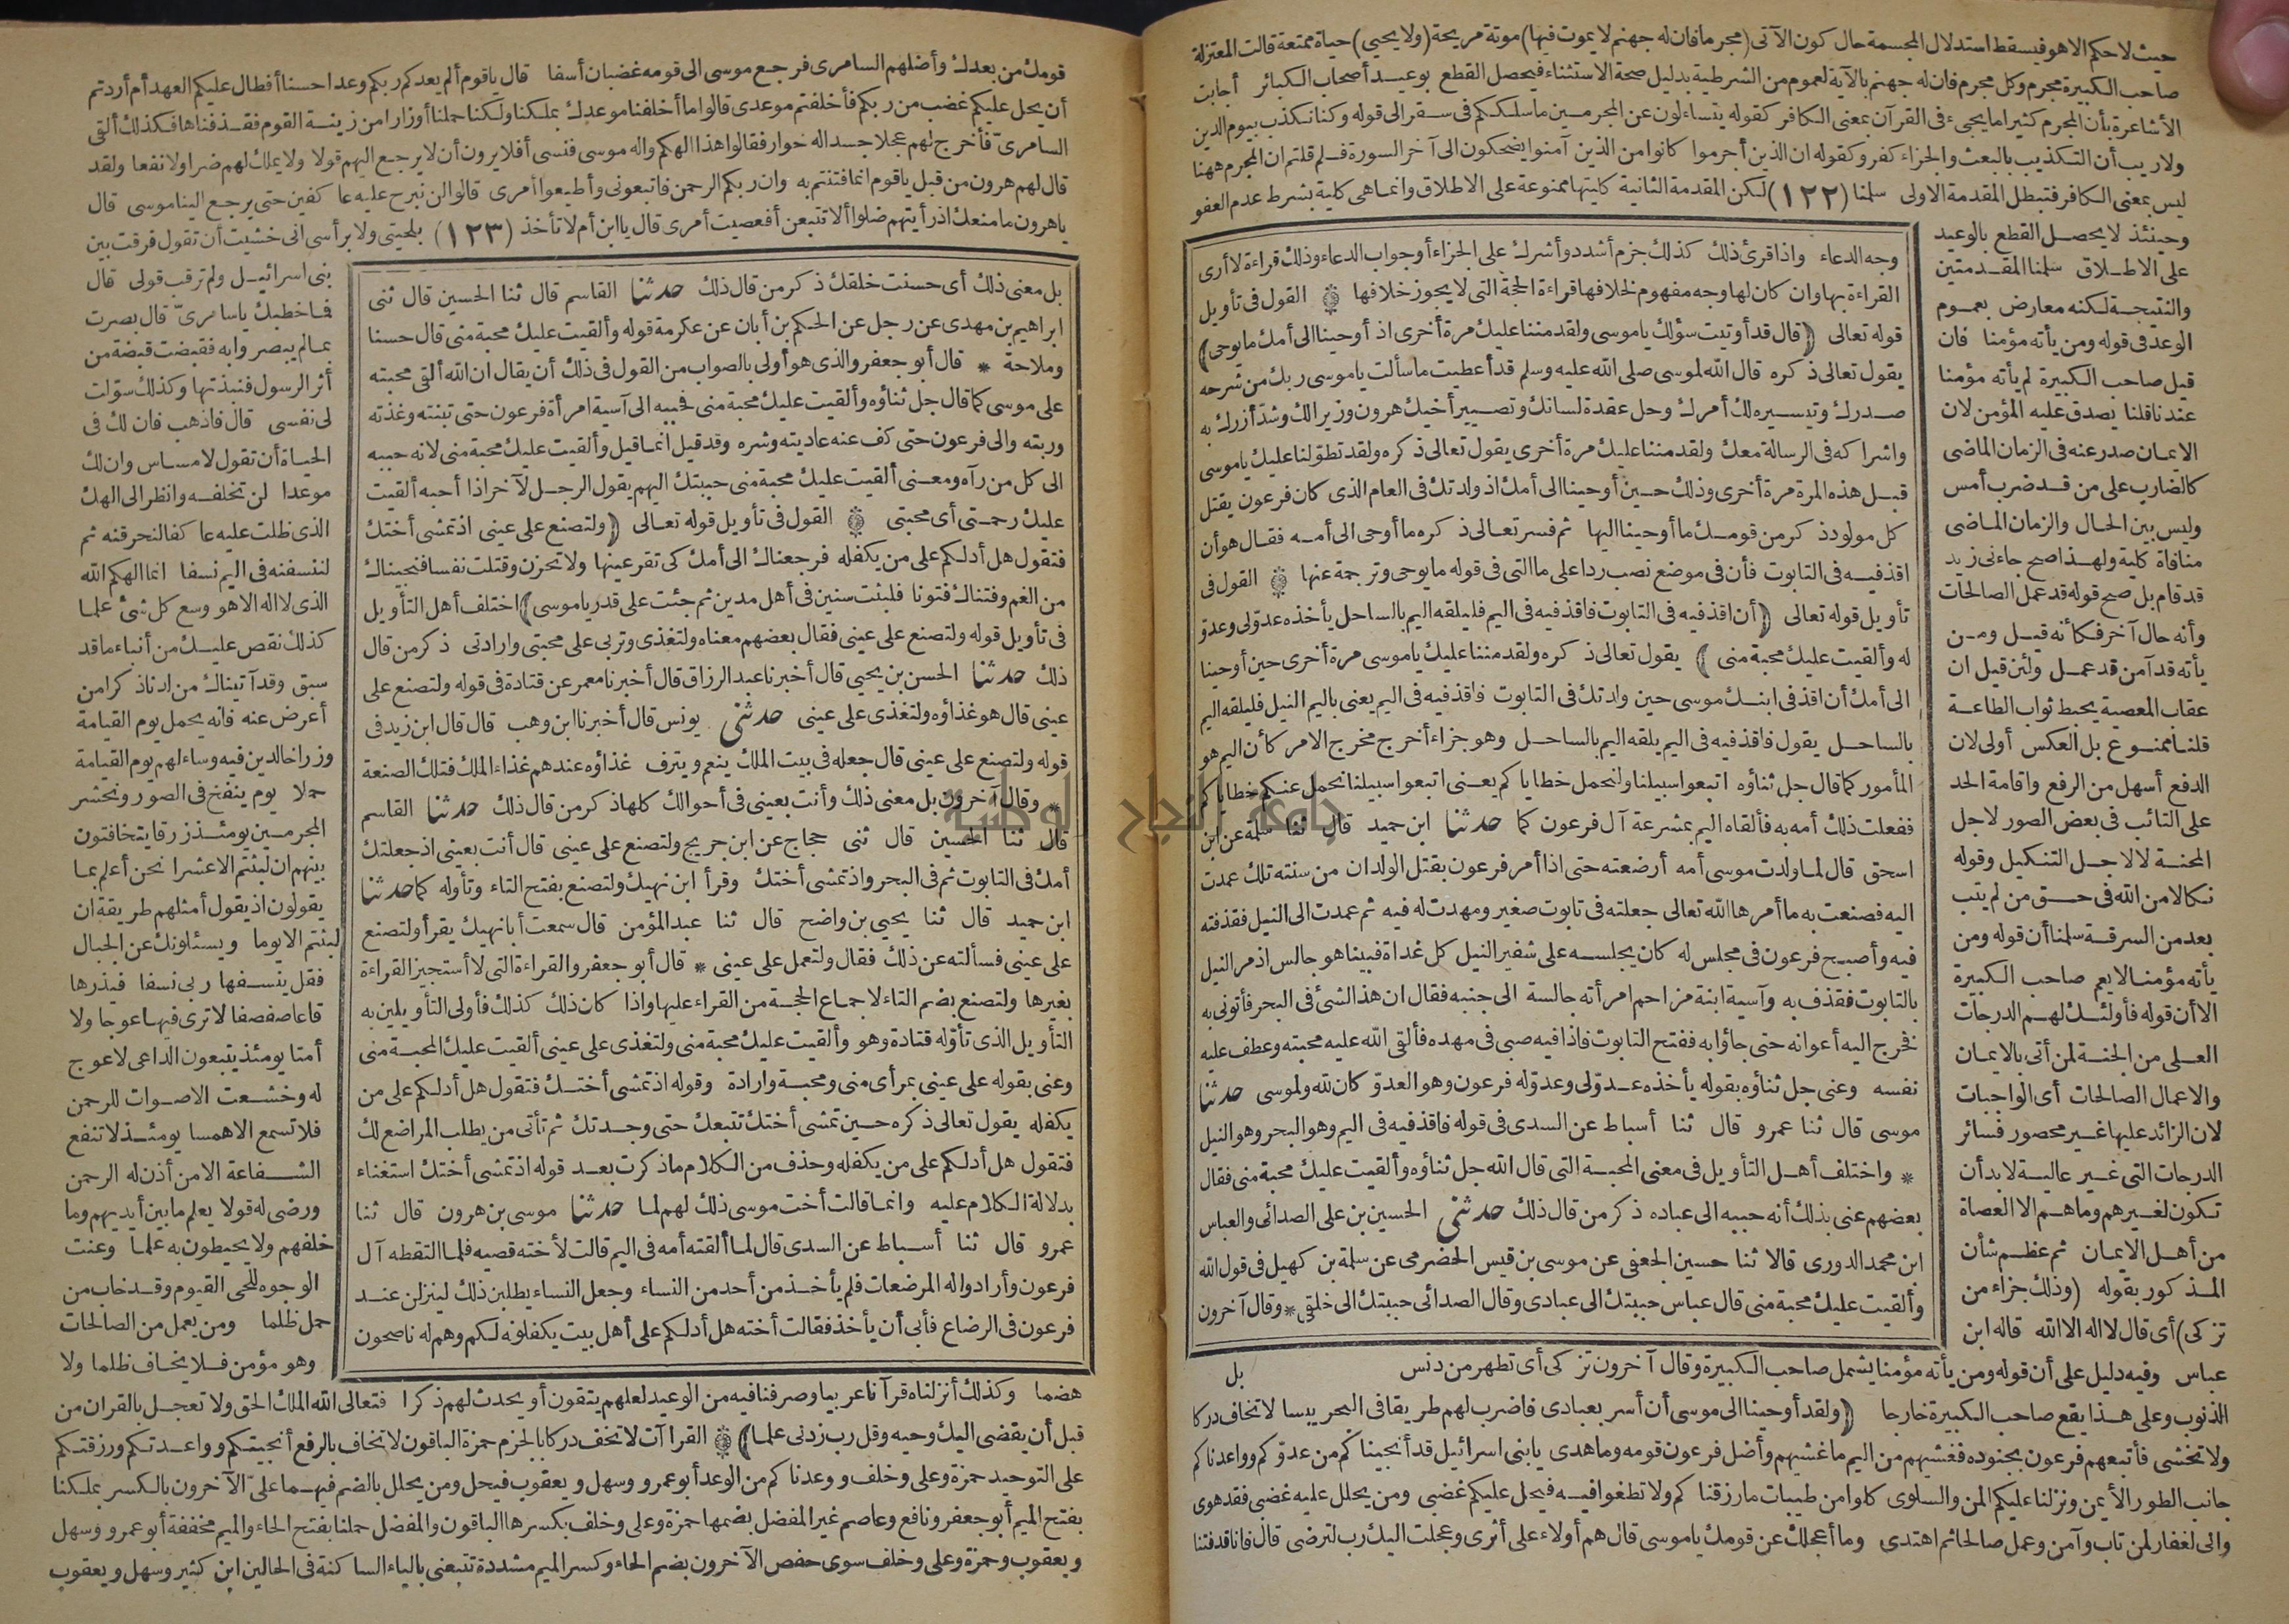 حيث لا حكم الا هو فيسقط استدلال المجسمة حال كون الآتى (مجرما فان له جهنم لا يموت فيها) موتة مريحة (ولا يحيى) حياة ممتعة قالت المعتزلة
صاحب الكبيرة مجرم وكل مجرم فان له جهنم بالآية لعموم من الشرطية بدليل صحة الاستثناء فيحصل القطع بوعيد أصحاب الكبائر أجابت
الأشاعرة بأن المجرم كثيرا ما يجىء فى القرآن بمعنى الكافر كقوله يتساءلون عن المجرمين ما سلككم فى سقر الى قوله وكنا نكذب بيوم الدين
ولا ريب أن التكذيب بالبعث والجزاء كفر وكقوله ان الذين أجرموا كانوا من الذين آمنوا يضحكون الى آخر السورة فلم قلتم ان المجرم ههنا
ليس بمعنى الكافر فتبطل المقدمة الاولى سلمنا (١٢٢) لكن المقدمة الثانية كليتها ممنوعة على الاطلاق وانما هى كلية بشرط عدم العفو
وحينئذ لا يحصل القطع بالوعيد
على الاطلاق سلمنا المقدمتين
والنتيجة لكنه معارض بعموم
الوعد فى قوله ومن يأته مؤمنا فان
قيل صاحب الكبيرة لم يأته مؤمنا
عندنا قلنا يصدق عليه المؤمن لان
الايمان صدر عنه فى الزمان الماضى
كالضارب على من قد ضرب أمس
وليس بين الحال والزمان الماضى
منافاة كلية ولهذا صح جاءنى زيد
قد قام بل صح قوله قد عمل الصالحات
وأنه حال آخر فكأنه قيل ومن
يأته قد آمن قد عمل ولئن قيل ان
عقاب المعصية يحبط ثواب الطاعة
قلنا ممنوع بل العكس أولى لان
الدفع أسهل من الرفع واقامة الحد
على التائب فى بعض الصور لاجل
المحنة لا لاجل التنكيل وقوله
نكالا من الله فى حق من لم يتب
بعد من السرقة سلمنا أن قوله ومن
يأته مؤمنا لا يعم صاحب الكبيرة
الا أن قوله فأولئك لهم الدرجات
العلى من الجنة لمن أتى بالايمان
والاعمال الصالحات أى الواجبات
لان الزائد عليها غير محصور فسائر
الدرجات التى غير عالية لا بد أن
تكون لغيرهم وما هم الا العصاة
من أهل الايمان ثم عظم شأن
المذكور بقوله (وذلك جزاء من
تزكى) أى قال لا اله الا الله قاله ابن
وجه الدعاء واذا قرئ ذلك كذلك جزم أشدد وأشرك على الجزاء أو جواب الدعاء وذلك قراءة لا أرى
القراءة بها وان كان لها وجه مفهوم لخلافها قراءة الحجة التى لا يجوز خلافها القول فى تأويل
قوله تعالى (قال قد أوتيت سؤلك يا موسى ولقد مننا عليك مرة أخرى اذ أوحينا الى أمك ما يوحى)
يقول تعالى ذكره قال الله لموسى صلى الله عليه وسلم قد أعطيت ما سألت يا موسى ربك من شرحه
صدرك وتيسيره لك أمرك وحل عقدة لسانك وتصيير أخيك هرون وزيرا لك وشد أزرك به
واشراكه فى الرسالة معك ولقد مننا عليك مرة أخرى يقول تعالى ذكره ولقد تطولنا عليك يا موسى
قبل هذه المرة مرة أخرى وذلك حين أوحينا الى أمك اذ ولدتك فى العام الذى كان فرعون يقتل
كل مولود ذكر من قومك ما أوحينا اليها ثم فسر تعالى ذكره ما أوحى الى أمه فقال هو أن
اقذفيه فى التابوت فأن فى موضع نصب ردا على ما التى فى قوله ما يوحى وترجمة عنها القول فى
تأويل قوله تعالى (أن اقذفيه فى التابوت فاقذفيه فى اليم فليلقه اليم بالساحل يأخذه عدو لى وعدو
له وألقيت عليك محبة منى) يقول تعالى ذكره ولقد مننا عليك يا موسى مرة أخرى حين أوحينا
الى أمك أن اقذفى ابنك موسى حين ولدتك فى التابوت فاقذفيه فى اليم يعنى باليم النيل فليلقه اليم
بالساحل يقول فاقذفيه فى اليم يلقه اليم بالساحل وهو جزاء أخرج مخرج الامر كأن اليم هو
المأمور كما قال جل ثناؤه اتبعوا سبيلنا ولنحمل خطاياكم يعنى اتبعوا سبيلنا نحمل عنكم خطاياكم
ففعلت ذلك أمه به فألقاه اليم بمشرعة آل فرعون كما حدثنا ابن حميد قال ثنا سلمة عن ابن
اسحق قال لما ولدت موسى أمه أرضعته حتى اذا أمر فرعون بقتل الولدان من سنته تلك عمدت
اليه فصنعت به ما أمرها الله تعالى جعلته فى تابوت صغير ومهدت له فيه ثم عمدت الى النيل فقذفته
فيه وأصبح فرعون فى مجلس له كان يجلسه على شفير النيل كل غداة فبينا هو جالس اذ مر النيل
بالتابوت فقذف به وآسية ابنة مزاحم امرأته جالسة الى جنبه فقال ان هذا لشئ فى البحر فأتونى به
فخرج اليه أعوانه حتى جاؤا به ففتح التابوت فاذا فيه صبى فى مهده فألقى الله عليه محبته وعطف عليه
نفسه وعنى جل ثناؤه بقوله يأخذه عدو لى وعدو له فرعون وهو العدو كان لله ولموسى حدثنا
موسى قال ثنا عمرو قال ثنا أسباط عن السدى فى قوله فاقذفيه فى اليم وهو البحر وهو النيل
* واختلف أهل التأويل فى معنى المحبة التى قال الله جل ثناؤه وألقيت عليك محبة منى فقال
بعضهم عنى بذلك أنه حببه الى عباده ذكر من قال ذلك حدثنى الحسين بن على الصدائى والعباس
ابن محمد الدورى قالا ثنا حسين الجعفى عن موسى بن قيس الحضرمى عن سلمة بن كهيل فى قول الله
وألقيت عليك محبة منى قال عباس حببتك الى عبادى وقال الصدائى حببتك الى خلقى * وقال آخرون
عباس وفيه دليل على أن قوله ومن يأته مؤمنا يشمل صاحب الكبيرة وقال آخرون تزكى أى تطهر من دنس
بل
الذنوب وعلى هذا يقع صاحب الكبيرة خارجا (ولقد أوحينا الى موسى أن أسر بعبادى فاضرب لهم طريقا فى البحر يبسا لا تخاف دركا
ولا تخشى فأتبعهم فرعون بجنوده فغشيهم من اليم ما غشيهم وأضل فرعون قومه وما هدى يا بنى اسرائيل قد أنجيناكم من عدوكم وواعدناكم
جانب الطور الأيمن ونزلنا عليكم المن والسلوى كلوا من طيبات ما رزقناكم ولا تطغوا فيه فيحل عليكم غضبى ومن يحلل عليه غضبى فقد هوى
وانى لغفار لمن تاب وآمن وعمل صالحا ثم اهتدى وما أعجلك عن قومك يا موسى قال هم أولاء على أثرى وعجلت اليك رب لترضى قال فانا قد فتنا
قومك من بعدك وأضلهم السامرى فرجع موسى الى قومه غضبان أسفا قال يا قوم ألم يعدكم ربكم وعدا حسنا أفطال عليكم العهد أم أردتم
أن يحل عليكم غضب من ربكم فأخلفتم موعدى قالوا ما أخلفنا موعدك بملكنا ولكنا حملنا أوزارا من زينة القوم فقذفناها فكذلك ألقى
السامرى فأخرج لهم عجلا جسدا له خوار فقالوا هذا الهكم واله موسى فنسى أفلا يرون أن لا يرجع اليهم قولا ولا يملك لهم ضرا ولا نفعا ولقد
قال لهم هرون من قبل يا قوم انما فتنتم به وان ربكم الرحمن فاتبعونى وأطيعوا أمرى قالوا لن نبرح عليه عاكفين حتى يرجع الينا موسى قال
يا هرون ما منعك اذ رأيتهم ضلوا ألا تتبعن أفعصيت أمرى قال يا ابن أم لا تأخذ (١٢٣) بلحيتى ولا برأسى انى خشيت أن تقول فرقت بين
بنى اسرائيل ولم ترقب قولى قال
فما خطبك يا سامرى قال بصرت
بما لم يبصروا به فقبضت قبضة من
أثر الرسول فنبذتها وكذلك سولت
لى نفسى قال فاذهب فان لك فى
الحياة أن تقول لا مساس وان لك
موعدا لن تخلفه وانظر الى الهك
الذى ظلت عليه عاكفا لنحرقنه ثم
لننسفنه فى اليم نسفا انما الهكم الله
الذى لا اله الا هو وسع كل شئ علما
كذلك نقص عليك من أنباء ما قد
سبق وقد آتيناك من لدنا ذكرا من
أعرض عنه فانه يحمل يوم القيامة
وزرا خالدين فيه وساء لهم يوم القيامة
حملا يوم ينفخ فى الصور ونحشر
المجرمين يومئذ زرقا يتخافتون
بينهم ان لبثتم الا عشرا نحن أعلم بما
يقولون اذ يقول أمثلهم طريقة ان
لبثتم الا يوما ويسئلونك عن الجبال
فقل ينسفها ربى نسفا فيذرها
قاعا صفصفا لا ترى فيها عوجا ولا
أمتا يومئذ يتبعون الداعى لا عوج
له وخشعت الاصوات للرحمن
فلا تسمع الا همسا يومئذ لا تنفع
الشفاعة الا من أذن له الرحمن
ورضى له قولا يعلم ما بين أيديهم وما
خلفهم ولا يحيطون به علما وعنت
الوجوه للحى القيوم وقد خاب من
حمل ظلما ومن يعمل من الصالحات
وهو مؤمن فلا يخاف ظلما ولا
بل معنى ذلك أى حسنت خلقك ذكر من قال ذلك حدثنا القاسم قال ثنا الحسين قال ثنى
ابراهيم بن مهدى عن رجل عن الحكم بن أبان عن عكرمة قوله وألقيت عليك محبة منى قال حسنا
وملاحة * قال أبو جعفر والذى هو أولى بالصواب من القول فى ذلك أن يقال ان الله ألقى محبته
على موسى كما قال جل ثناؤه وألقيت عليك محبة منى فحببه الى آسية امرأة فرعون حتى تبنته وغذته
وربته والى فرعون حتى كف عنه عاديته وشره وقد قيل انما قيل وألقيت عليك محبة منى لانه حببه
الى كل من رآه ومعنى ألقيت عليك محبة منى حببتك اليهم يقول الرجل لآخر اذا أحبه ألقيت
عليك رحمتى أى محبتى القول فى تأويل قوله تعالى (ولتصنع على عينى اذ تمشى أختك
فتقول هل أدلكم على من يكفله فرجعناك الى أمك كى تقر عينها ولا تحزن وقتلت نفسا فنجيناك
من الغم وفتناك فتونا فلبثت سنين فى أهل مدين ثم جئت على قدر يا موسى) اختلف أهل التأويل
فى تأويل قوله ولتصنع على عينى فقال بعضهم معناه ولتغذى وتربى على محبتى وارادتى ذكر من قال
ذلك حدثنا الحسن بن يحيى قال أخبرنا عبد الرزاق قال أخبرنا معمر عن قتادة فى قوله ولتصنع على
عينى قال هو غذاؤه ولتغذى على عينى حدثنى يونس قال أخبرنا ابن وهب قال قال ابن زيد فى
قوله ولتصنع على عينى قال جعله فى بيت الملك ينعم ويترف غذاؤه عندهم غذاء الملك فتلك الصنعة
* وقال آخرون بل معنى ذلك وأنت بعينى فى أحوالك كلها ذكر من قال ذلك حدثنا القاسم
قال ثنا الحسين قال ثنى حجاج عن ابن جريج ولتصنع على عينى قال أنت بعينى اذ جعلتك
أمك فى التابوت ثم فى البحر واذ تمشى أختك وقرأ ابن نهيك ولتصنع بفتح التاء وتأوله كما حدثنا
ابن حميد قال ثنا يحيى بن واضح قال ثنا عبد المؤمن قال سمعت أبا نهيك يقرأ ولتصنع
على عينى فسألته عن ذلك فقال ولتعمل على عينى * قال أبو جعفر والقراءة التى لا أستجيز القراءة
بغيرها ولتصنع بضم التاء لاجماع الحجة من القراء عليها واذا كان ذلك كذلك فأولى التأويلين به
التأويل الذى تأوله قتادة وهو وألقيت عليك محبة منى ولتغذى على عينى ألقيت عليك المحبة منى
وعنى بقوله على عينى بمرأى منى ومحبة وارادة وقوله اذ تمشى أختك فتقول هل أدلكم على من
يكفله يقول تعالى ذكره حين تمشى أختك تتبعك حتى وجدتك ثم تأتى من يطلب المراضع لك
فتقول هل أدلكم على من يكفله وحذف من الكلام ما ذكرت بعد قوله اذ تمشى أختك استغناء
بدلالة الكلام عليه وانما قالت أخت موسى ذلك لهم لما حدثنا موسى بن هرون قال ثنا
عمرو قال ثنا أسباط عن السدى قال لما ألقته أمه فى اليم قالت لأخته قصيه فلما التقطه آل
فرعون وأرادوا له المرضعات فلم يأخذ من أحد من النساء وجعل النساء يطلبن ذلك لينزلن عند
فرعون فى الرضاع فأبى أن يأخذ فقالت أخته هل أدلكم على أهل بيت يكفلونه لكم وهم له ناصحون
هضما وكذلك أنزلناه قرآنا عربيا وصرفنا فيه من الوعيد لعلهم يتقون أو يحدث لهم ذكرا فتعالى الله الملك الحق ولا تعجل بالقرآن من
قبل أن يقضى اليك وحيه وقل رب زدنى علما) القراآت لا تخف دركا بالجزم حمزة الباقون لا تخاف بالرفع أنجيتكم وواعدتكم ورزقتكم
على التوحيد حمزة وعلى وخلف ووعدناكم من الوعد أبو عمرو وسهل ويعقوب فيحل ومن يحلل بالضم فيهما على الآخرون بالكسر بملكنا
بفتح الميم أبو جعفر ونافع وعاصم غير المفضل بضمها حمزة وعلى وخلف بكسرها الباقون والمفضل حملنا بفتح الحاء والميم مخففة أبو عمرو وسهل
ويعقوب وحمزة وعلى وخلف سوى حفص الآخرون بضم الحاء وكسر الميم مشددة تتبعنى بالياء الساكنة فى الحالين ابن كثير وسهل ويعقوب
جامعة النجاح الوطنية